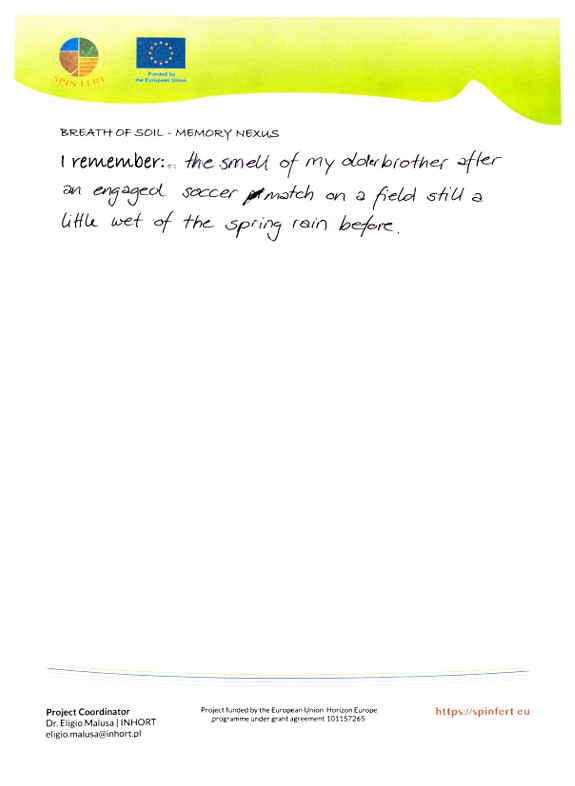 SPINFERT
Funded by
the European Union
BREATH OF SOIL - MEMORY NEXUS
I remember: the smell of my olderbrother after
an engaged soccer match on a field still a
little wet of the spring rain before.
Project Coordinator
Dr. Eligio Malusa | INHORT
eligio.malusa@inhort.pl
Project funded by the European Union Horizon Europe
programme under grant agreement 101157265
https://spinfert.eu